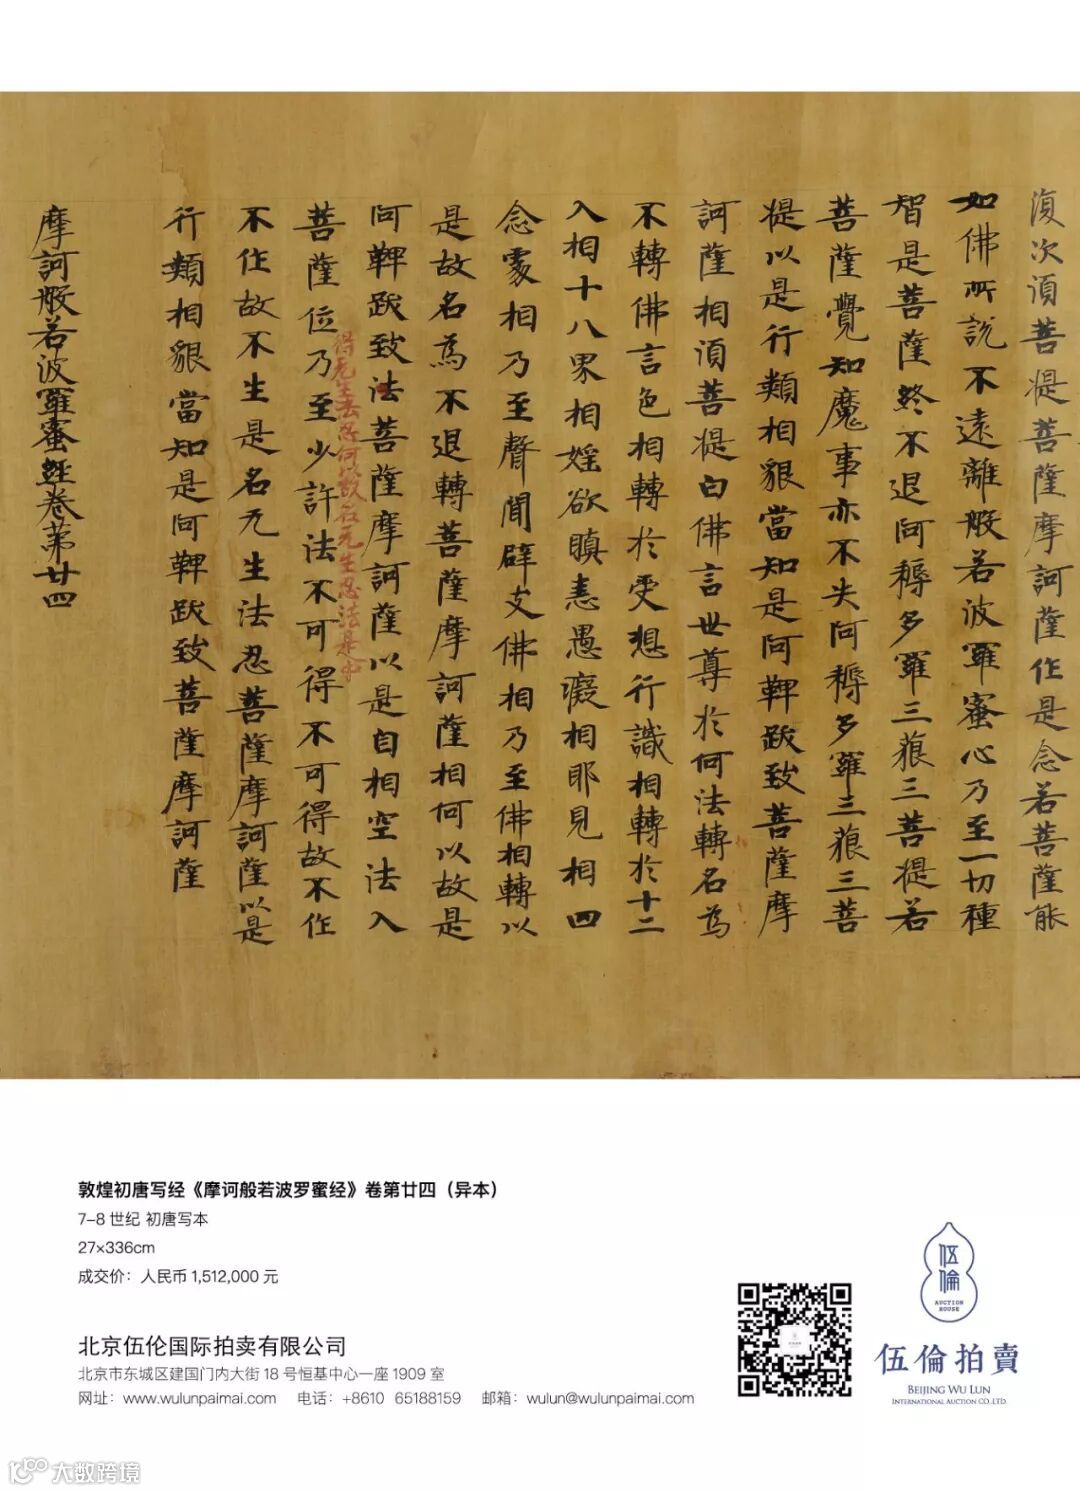 復次須菩提菩薩摩訶薩作是念若菩薩能
如佛所說不遠離般若波羅蜜心乃至一切種
智是菩薩終不退阿耨多羅三藐三菩提若
菩薩覺知魔事亦不失阿耨多羅三藐三菩
提以是行類相貌當知是阿鞞跋致菩薩摩
訶薩相須菩提白佛言世尊於何法轉名為
不轉佛言色相轉於受想行識相轉於十二
入相十八界相婬欲瞋恚愚癡相耶見相四
念處相乃至聲聞辟支佛相乃至佛相轉以
是故名為不退轉菩薩摩訶薩相何以故是
阿鞞跋致法菩薩摩訶薩以是自相空法入
得无生法忍何以故名无生忍法是中
菩薩位乃至少許法不可得不可得故不作
不作故不生是名无生法忍菩薩摩訶薩以是
行類相貌當知是阿鞞跋致菩薩摩訶薩
摩訶般若波羅蜜經卷第廿四
敦煌初唐写经《摩诃般若波罗蜜经》卷第廿四（异本）
7-8 世纪 初唐写本
27×336cm
成交价：人民币 1,512,000 元
北京伍伦国际拍卖有限公司
北京市东城区建国门内大街 18 号恒基中心一座 1909 室
网址：www.wulunpaimai.com 电话：+8610 65188159 邮箱：wulun@wulunpaimai.com
伍倫
AUCTION
HOUSE
伍倫拍賣
BEIJING WU LUN
INTERNATIONAL AUCTION CO.,LTD.
大数跨境